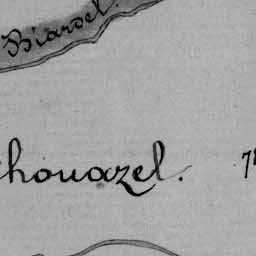 Biardel.
houazel.